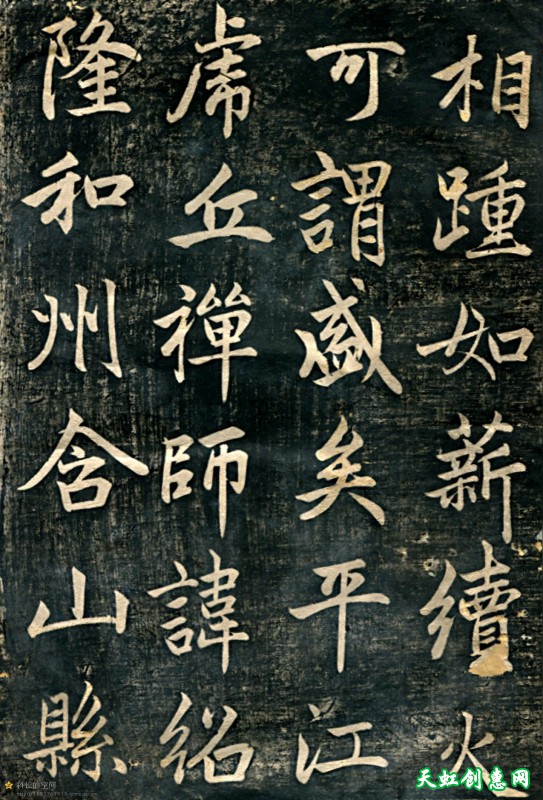 相踵如薪續火
可謂盛矣平江
虎丘禪師諱紹
隆和州含山縣
天虹创惠网